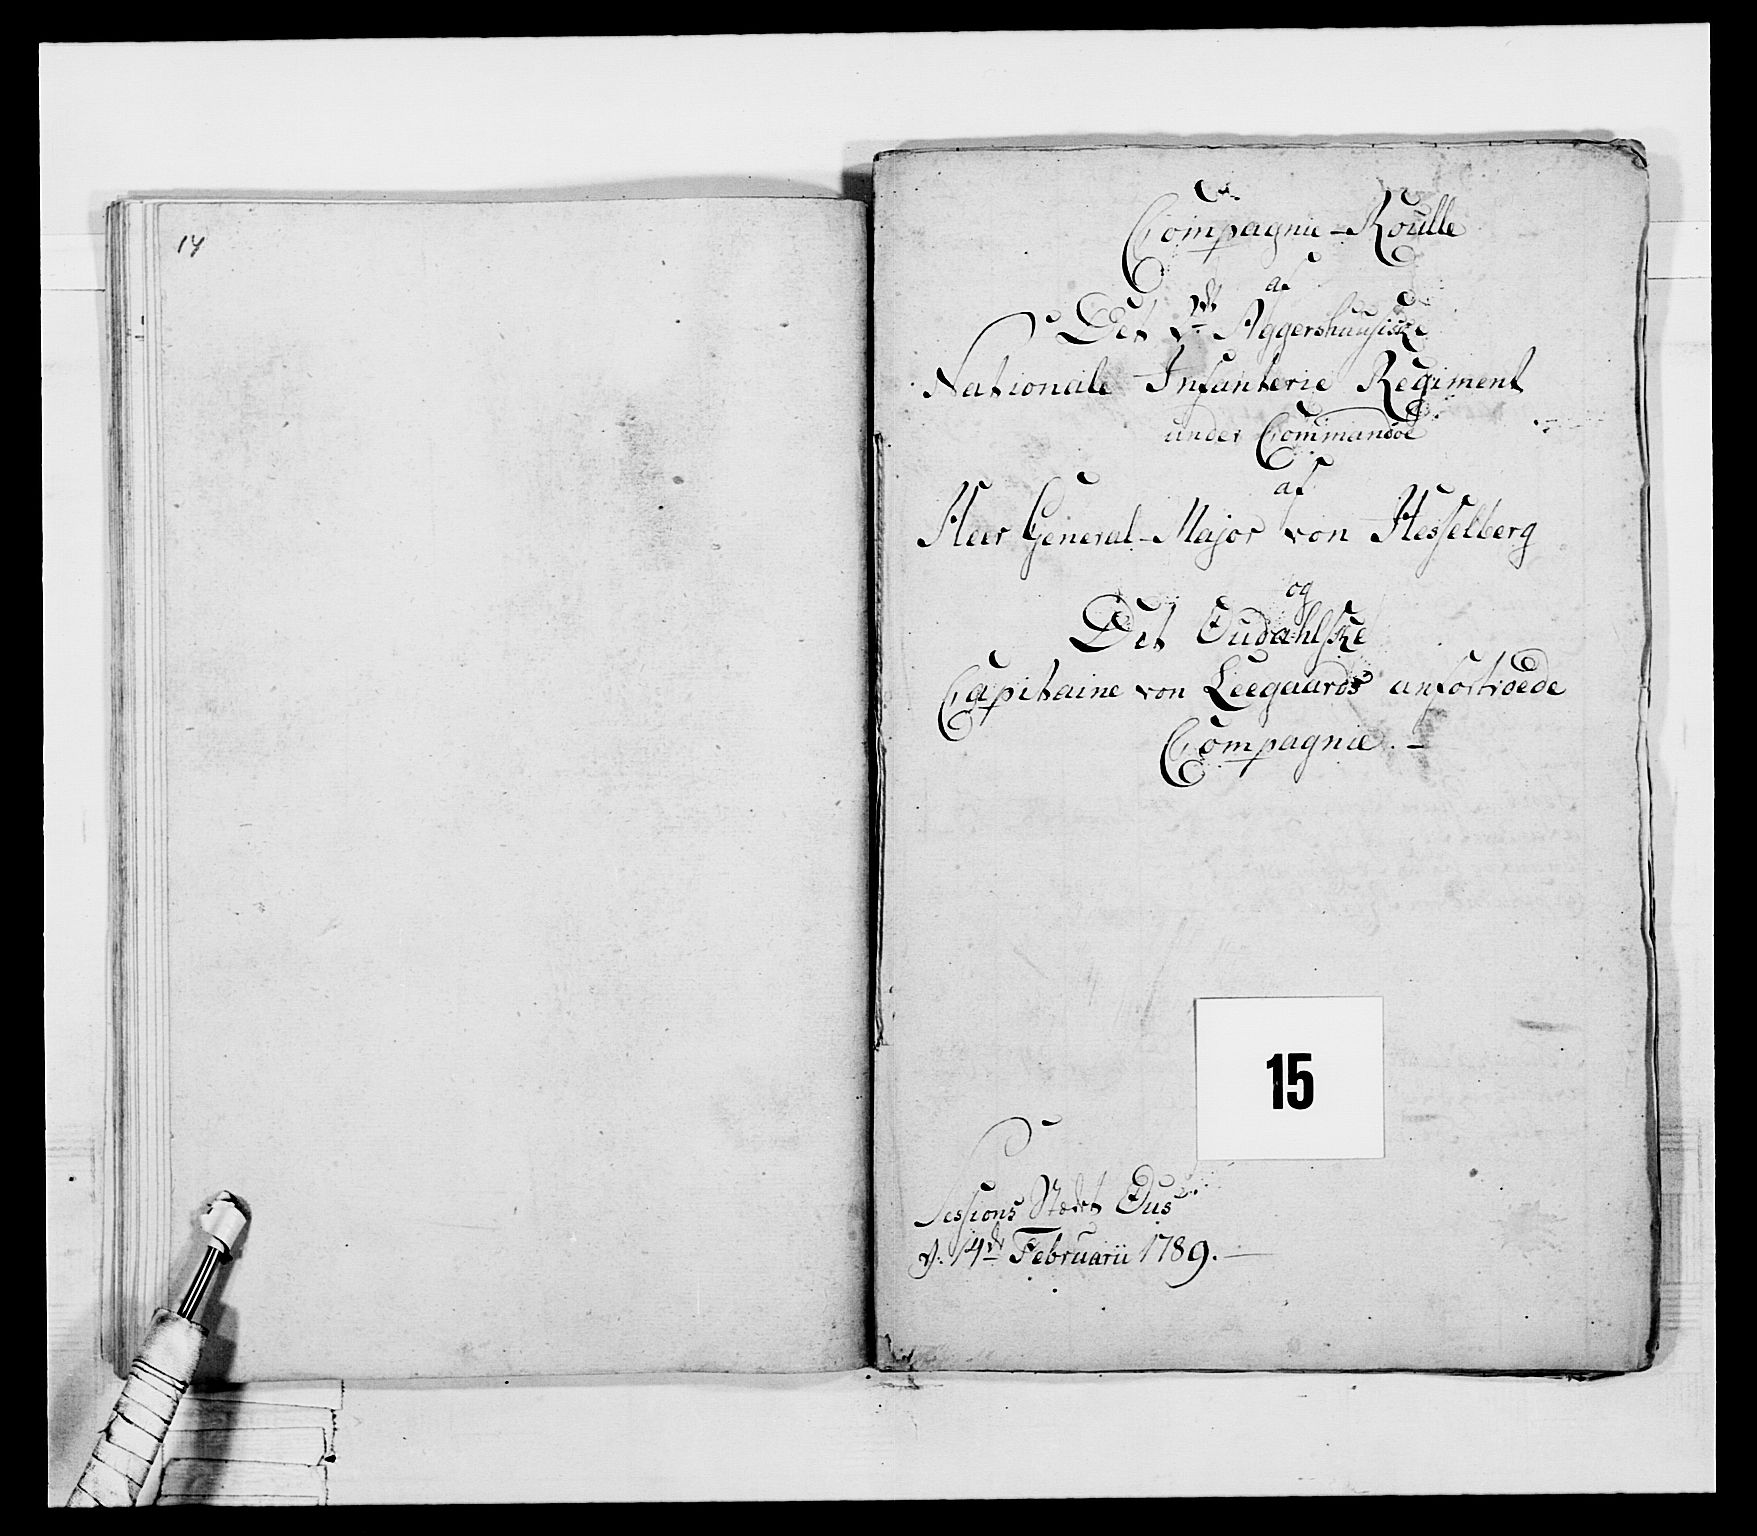 14
Compagnie-Roulle
af
Det 1ste Aggershuusiske
Nationale Infanterie Regiment
under Commandoe
af
Heer General-Major von Hesselberg
og
Det Oudahlske
Capitaine von Leegaards anfortroede
Compagnie. -
15
Sessions Stædet Ous
d. 14de Februarii 1789. -